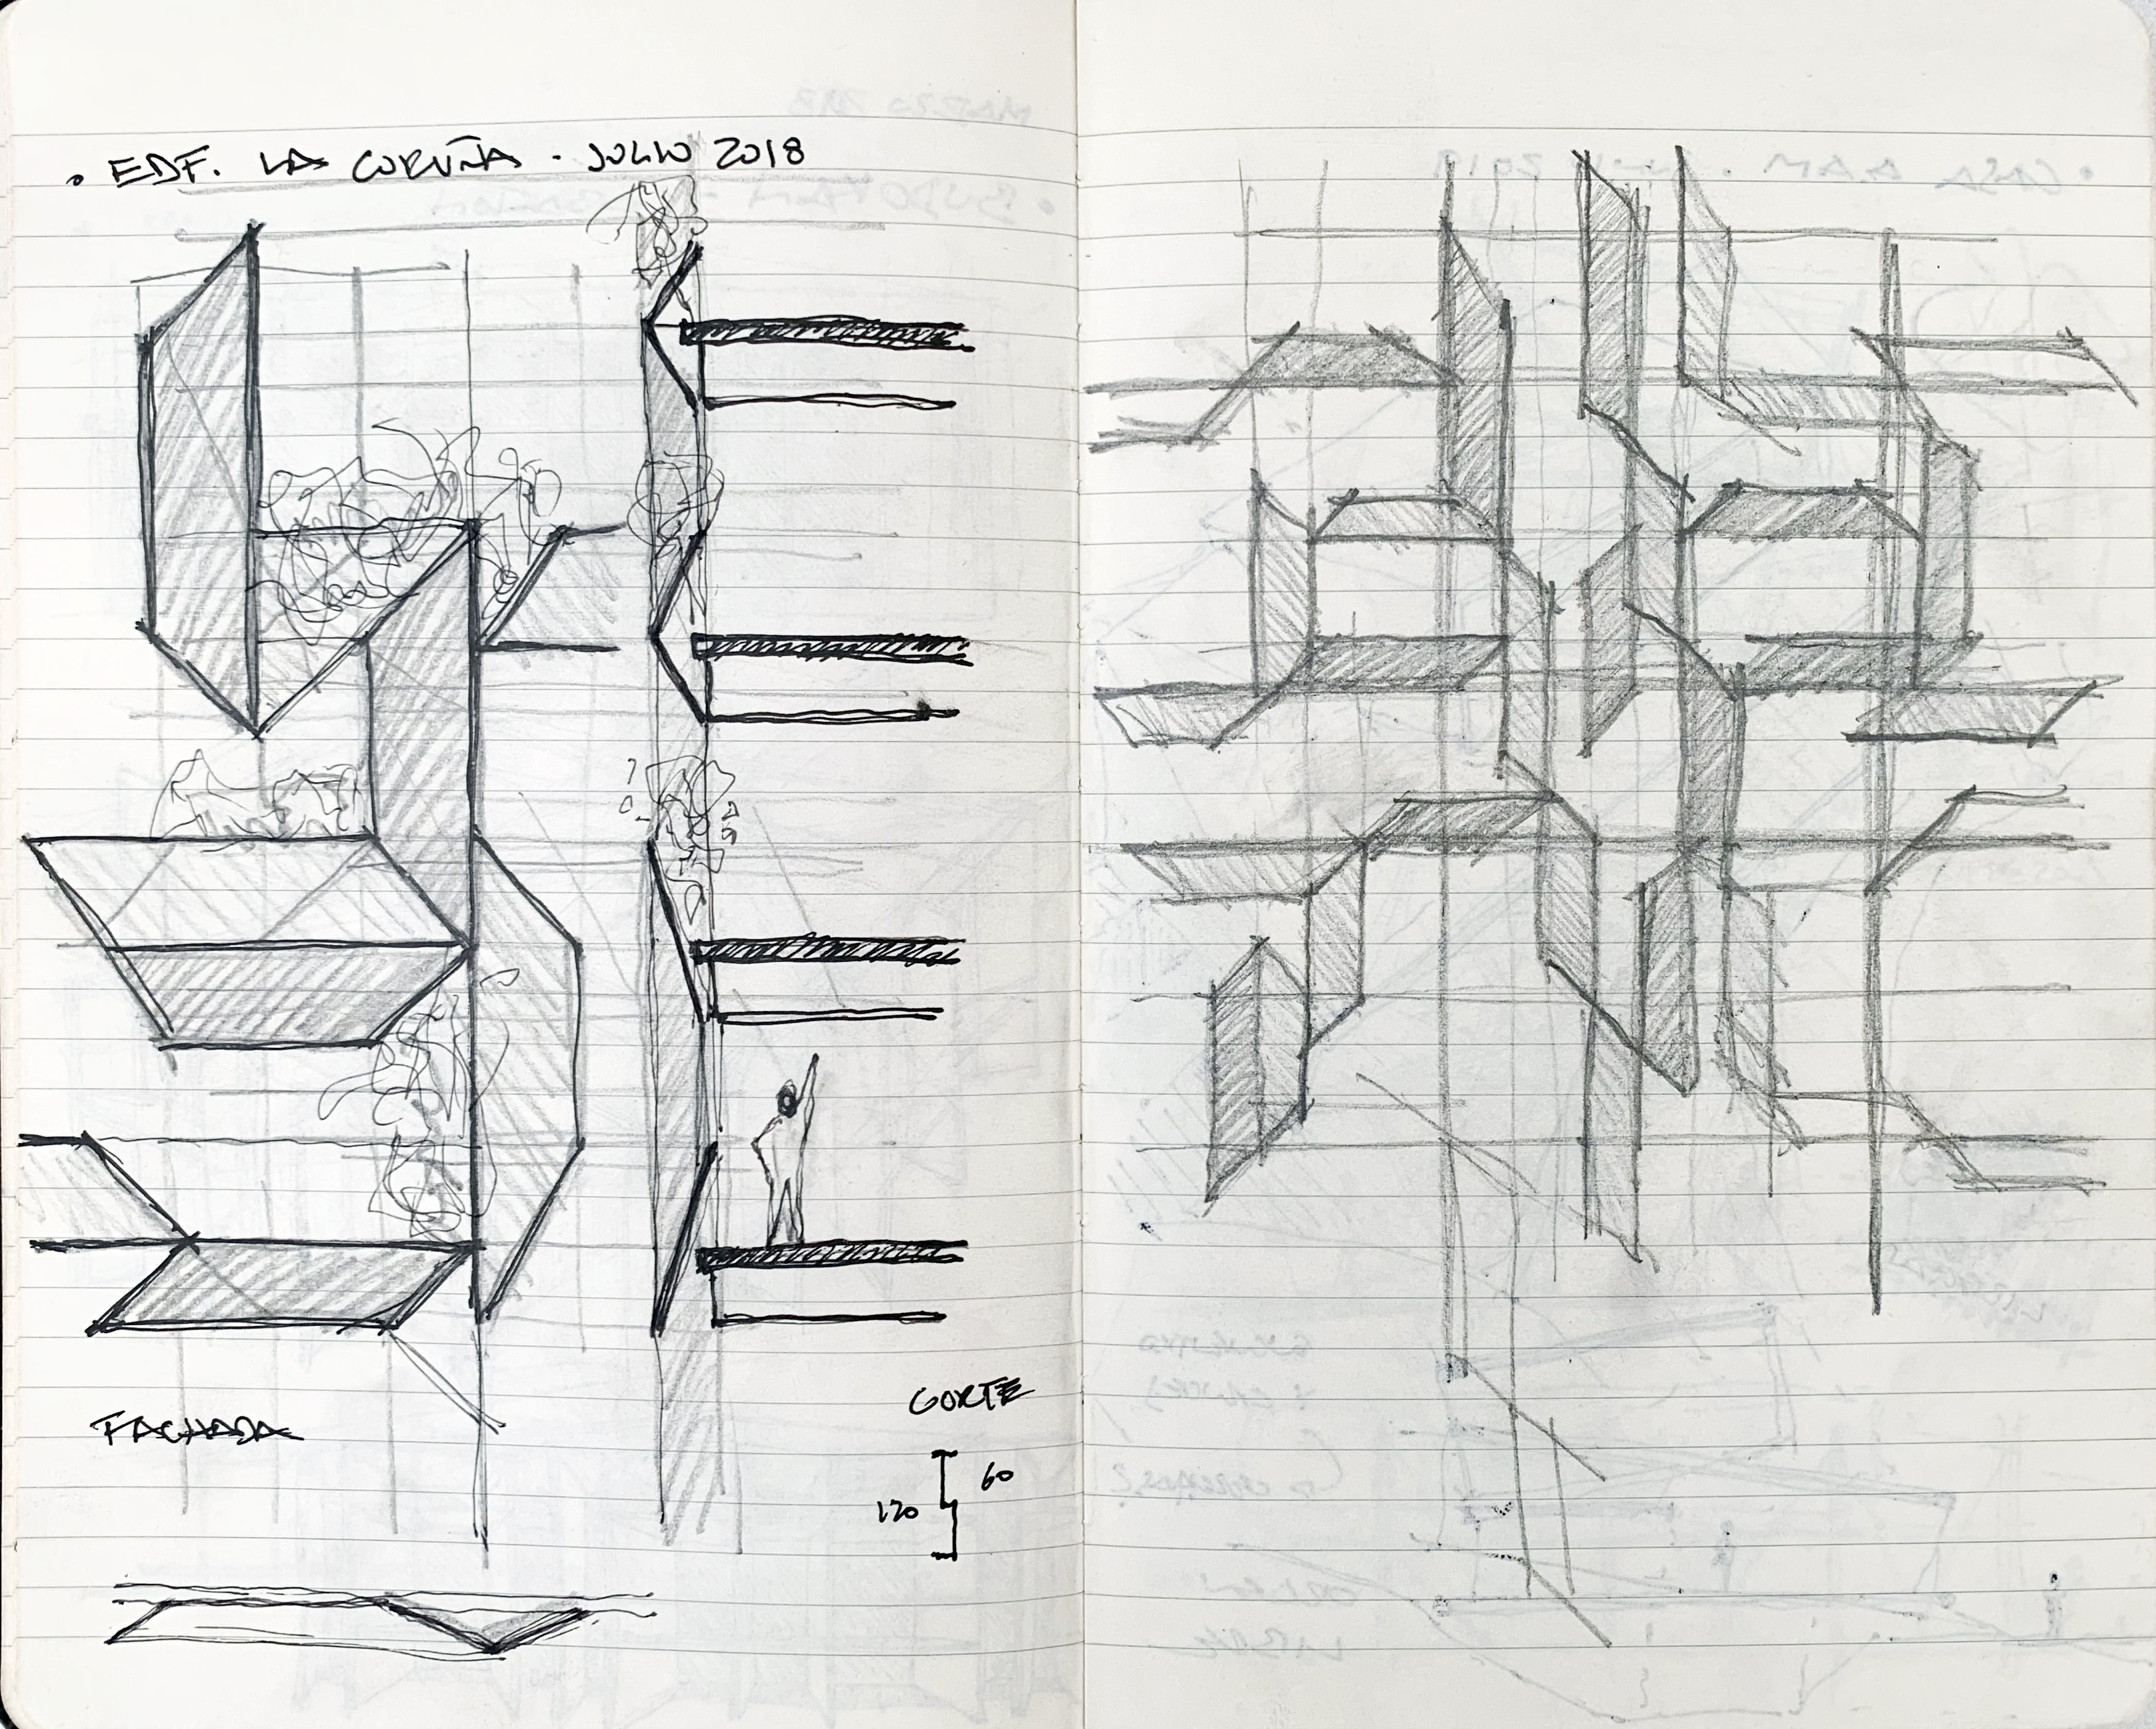 . EDF. LA CORUÑA - JULIO 2018
FACHADA
CORTE
60
120